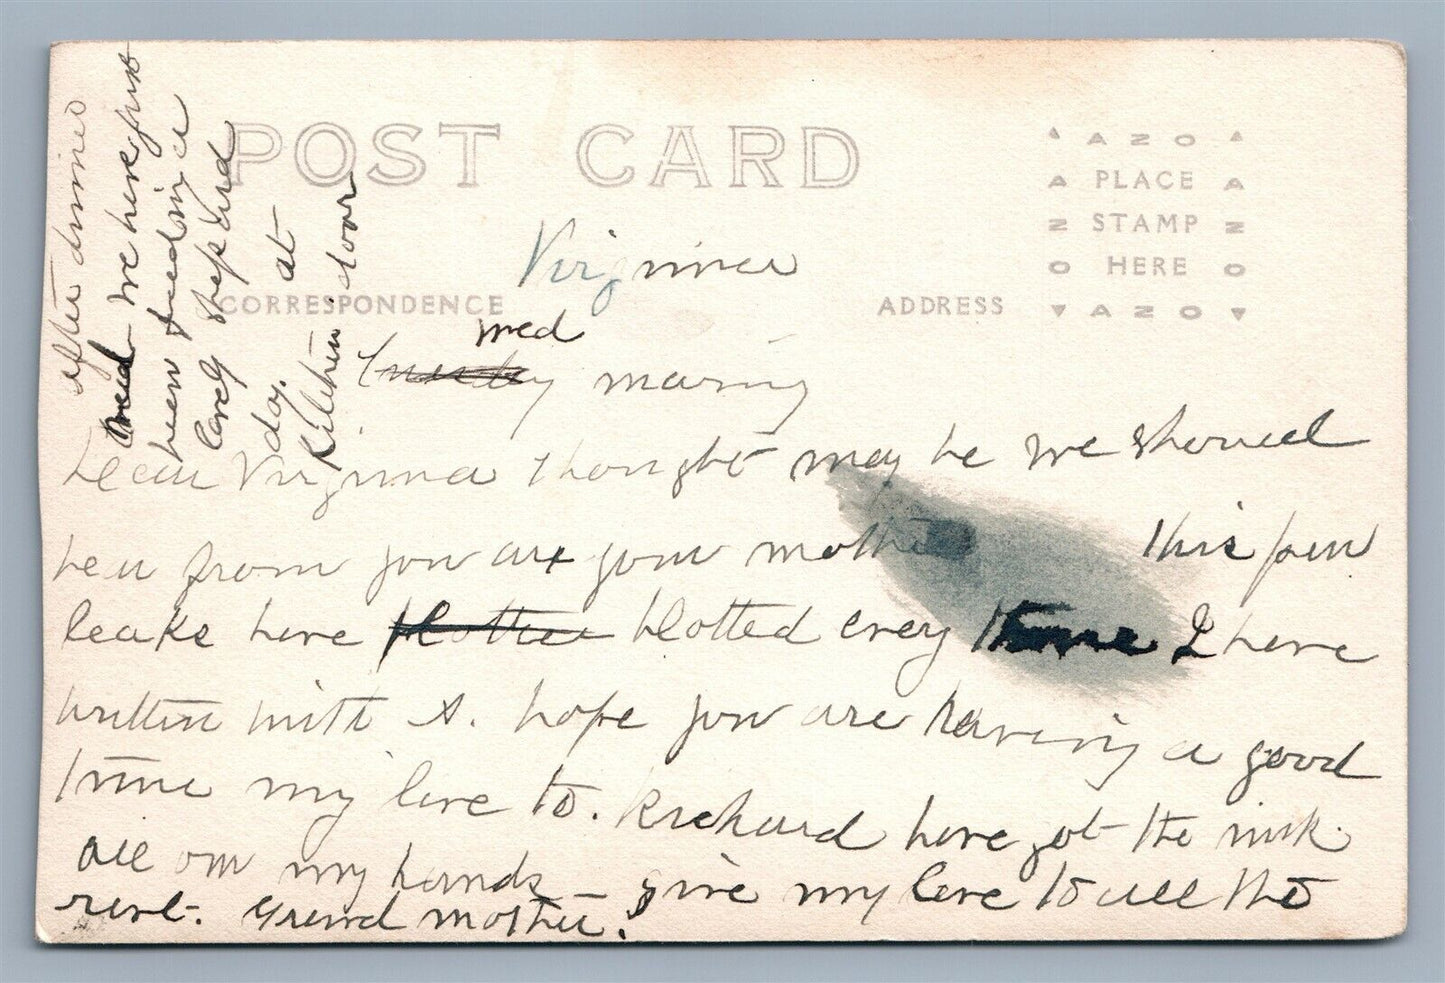 POST CARD
AZO
PLACE
STAMP
HERE
AZO
CORRESPONDENCE
ADDRESS
after dinner
Wed we have just
been feeding a
lovely shepherd
dog. at
Kitchen door
Virginia
Wed
morning
Dear Virginia thought may be we should
hear from you or your mother This pen
leaks have blotted every time I have
written with it. hope you are having a good
time my love to. Richard have got the ink
all on my hands – give my love to all the
rest. Grand mother.